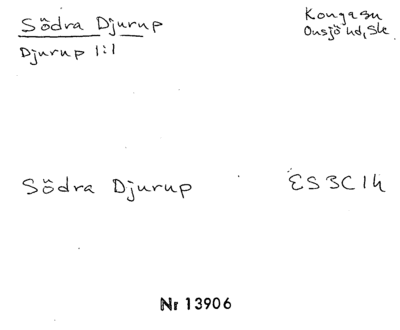 Södra Djurup
Djurup 1:1
Konga sn
Onsjö hd, Sk
Södra Djurup
ES 3C 1h
Nr 13906